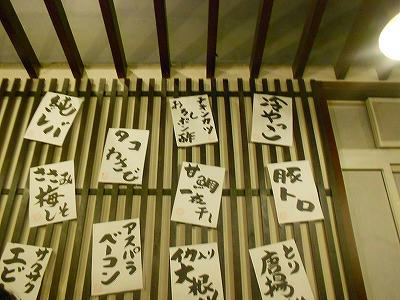 純レバ
タコ
わさび
チキンカツ
おろし
ポン酢
冷やっこ
ささみ
梅しそ
甘鯛
一夜干し
豚トロ
アスパラ
ベーコン
イカ入り
大根
とり
唐揚
エビ